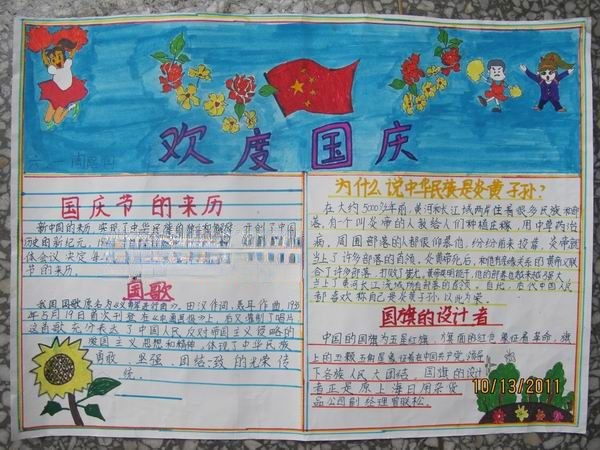 欢度国庆
国庆节的来历
新中国的来历,实现了中华民族的
历史的新纪元,
体会议决定每
节的来历。
国歌
我国国歌原名为《义勇军进行曲》。田汉作词,聂耳作曲,1935
年5月19日首次刊登在 后又灌制了唱片
这首歌充分表达了中国人民反对帝国主义侵略的
爱国主义思想和精神,体现了中华民族
勇敢、坚强、团结一致的光荣传
统。
为什么说中华民族是炎黄子孙?
在大约5000多年前,黄河和长江流域两岸住着很多民族和部
落,有一个叫炎帝的人教给人们种植庄稼,用中草药治
病,周围部落的人都很仰慕他,纷纷前来投靠,炎帝就
当上了许多部落的首领,炎黄帝死后,和他有 关系的黄帝又联
合了许多部落,打败了蚩尤,黄帝 能干,他的部落也越来越强大,
当上了黄河长江流域两岸部落的首领。自此,后代中国人
都喜欢称自己是炎黄子孙,以此为荣。
国旗的设计者
中国的国旗为五星红旗,旗面的红色象征着革命,旗
上的五颗五角星 象征着在中国共产党领导
下各族人民大团结。国旗的设计
者正是原上海日用杂货
品公司副经理曾联松。
10/13/2011